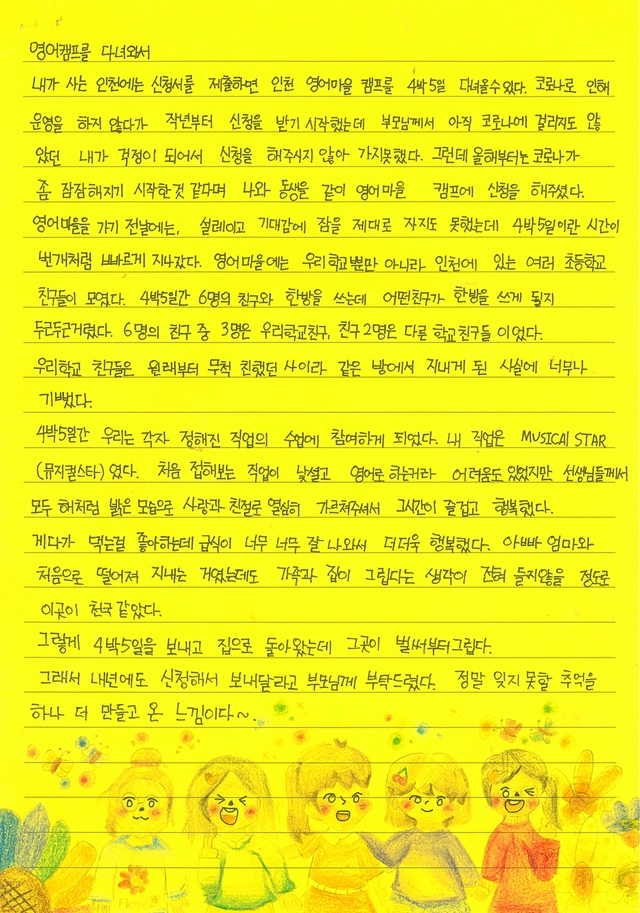 영어캠프를 다녀와서
내가 사는 인천에는 신청서를 제출하면 인천 영어마을 캠프를 4박5일 다녀올수있다. 코로나로 인해
운영을 하지 않다가 작년부터 신청을 받기 시작했는데 부모님께서 아직 코로나에 걸리지도 않
았던 내가 걱정이 되어서 신청을 해주시지 않아 가지못했다. 그런데 올해부터는 코로나가
좀 잠잠해지기 시작한것 같다며 나와 동생을 같이 영어마을 캠프에 신청을 해주셨다.
영어마을을 가기 전날에는, 설레이고 기대감에 잠을 제대로 자지도 못했는데 4박5일이란 시간이
번개처럼 빠르게 지나갔다. 영어마을에는 우리학교뿐만 아니라 인천에 있는 여러 초등학교
친구들이 모였다. 4박5일간 6명의 친구와 한방을 쓰는데 어떤친구가 한방을 쓰게 될지
두근두근거렸다. 6명의 친구 중 3명은 우리학교친구, 친구 2명은 다른 학교친구들 이었다.
우리학교 친구들은 원래부터 무척 친했던 사이라 같은 방에서 지내게 된 사실에 너무나
기뻤다.
4박5일간 우리는 각자 정해진 직업의 수업에 참여하게 되었다. 내 직업은 MUSICAl STAR
(뮤지컬스타)였다. 처음 접해보는 직업이 낯설고 영어로 하는거라 어려움도 있었지만 선생님들께서
모두 해처럼 밝은 모습으로 사랑과 친절로 열심히 가르쳐주셔서 그시간이 즐겁고 행복했다.
게다가 먹는걸 좋아하는데 급식이 너무 너무 잘 나와서 더더욱 행복했다. 아빠 엄마와
처음으로 떨어져 지내는 거였는데도 가족과 집이 그립다는 생각이 전혀 들지않을 정도로
이곳이 천국 같았다.
그렇게 4박5일을 보내고 집으로 돌아왔는데 그곳이 벌써부터그립다.
그래서 내년에도 신청해서 보내달라고 부모님께 부탁드렸다. 정말 잊지 못할 추억을
하나 더 만들고 온 느낌이다~.